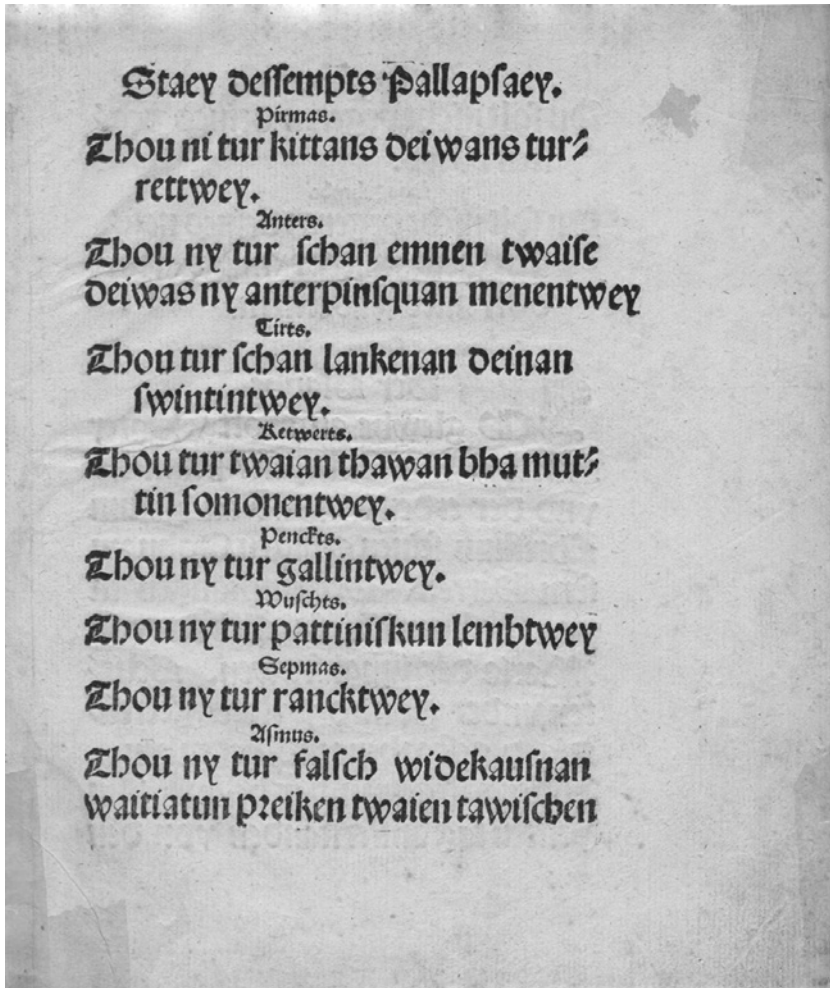 Staey dessempts Pallapsaey.
Pirmas.
Thou ni tur kittans deiwans tur⸗
rettwey.
Anters.
Thou ny tur schan emnen twaise
deiwas ny anterpinsquan menentwey
Tirts.
Thou tur schan lankenan deinan
swintintwey.
Ketwerts.
Thou tur twaian thawan bha mut⸗
tin somonentwey.
Penckts.
Thou ny tur gallintwey.
Wuschts.
Thou ny tur pattiniskun lembtwey
Sepmas.
Thou ny tur rancktwey.
Asmus.
Thou ny tur falsch widekausnan
waitiatun preiken twaien tawischen